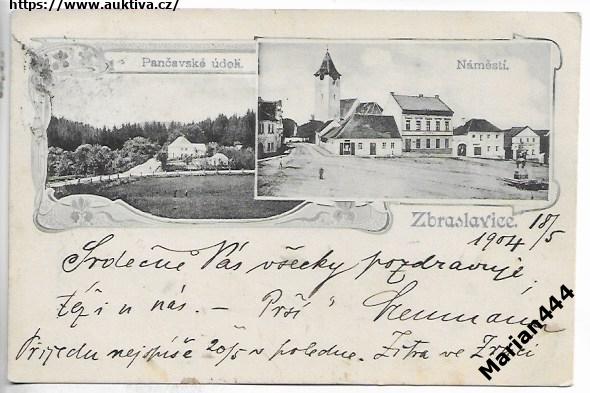 https://www.auktiva.cz/
Pančavské údolí.
Náměstí.
Zbraslavice.
18/5
1904
Srdečně Vás všecky pozdravuje,
též i u nás. — Prší "
Přijedu nejspíše 20/5 v poledne. Zítra ve Zruči
Marian444